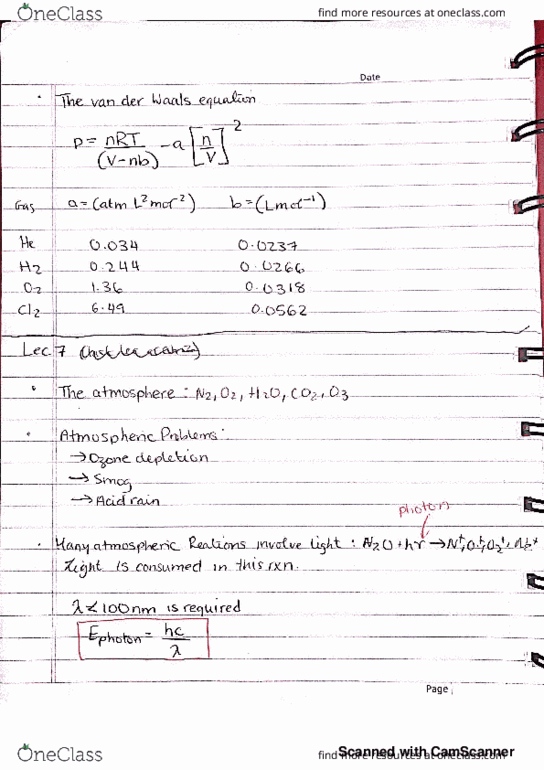 OneClass find more resources at oneclass.com
Date
· The van der Waals equation
P = nRT/(V-nb) - a[n/V]²
Gas a=(atm L²mol⁻²) b=(Lmol⁻¹)
He 0.034 0.0237
H₂ 0.244 0.0266
O₂ 1.36 0.0318
Cl₂ 6.49 0.0562
Lec 7
· The atmosphere : N₂, O₂, H₂O, CO₂, O₃
· Atmospheric Problems:
→ Ozone depletion
→ Smog
→ Acid rain
photons
· Many atmospheric Reations involve light : N₂O + hr → N⁺, O⁺, O₂⁺,
Light is consumed in this rxn.
λ < 100nm is required
Ephoton = hc/λ
Page
OneClass find more resources at oneclass.com
Scanned with CamScanner